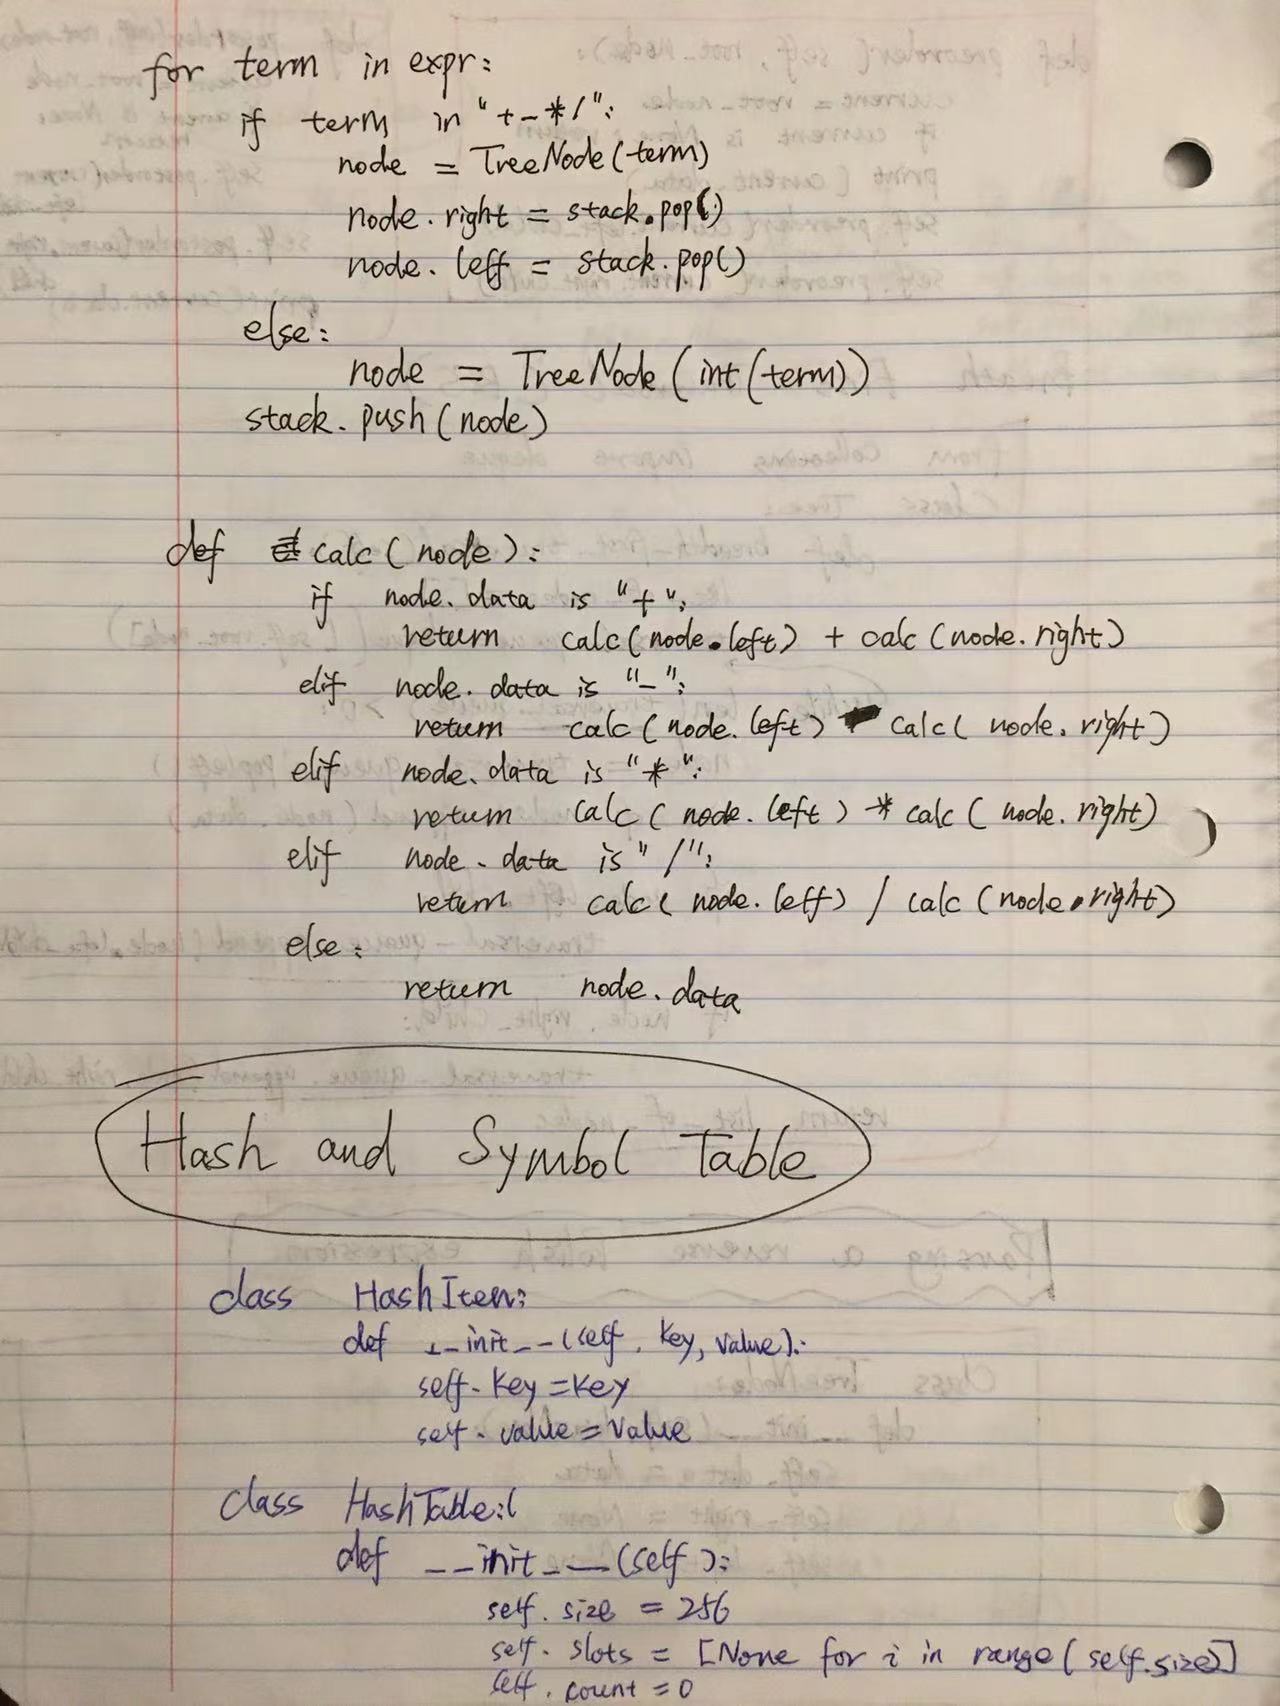 for term in expr:
if term in "+-*/":
node = TreeNode(term)
node.right = stack.pop()
node.left = stack.pop()
else:
node = TreeNode(int(term))
stack.push(node)
def calc(node):
if node.data is "+":
return calc(node.left) + calc(node.right)
elif node.data is "-":
return calc(node.left) - calc(node.right)
elif node.data is "*":
return calc(node.left) * calc(node.right)
elif node.data is "/":
return calc(node.left) / calc(node.right)
else:
return node.data
Hash and Symbol Table
class HashItem:
def __init__(self, key, value):
self.key=key
self.value=value
class HashTable:(
def __init__(self):
self.size = 256
self.slots = [None for i in range(self.size)]
self.count = 0